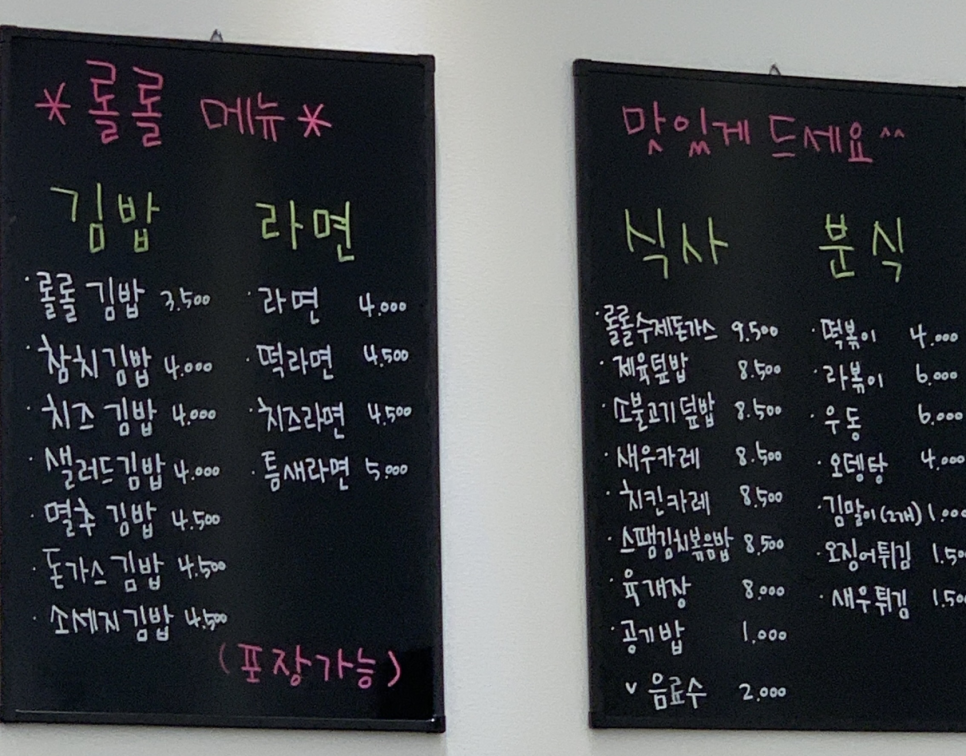 *롤롤 메뉴*
김밥
· 롤롤 김밥 3.500
· 참치김밥 4.000
· 치즈 김밥 4.000
· 샐러드김밥 4.000
· 멸추 김밥 4.500
· 돈가스 김밥 4.500
· 소세지김밥 4.500
라면
· 라면 4.000
· 떡라면 4.500
· 치즈라면 4.500
· 틈새라면 5.000
(포장가능)
맛있게 드세요^^
식사
· 롤롤수제돈가스 9.500
· 제육덮밥 8.500
· 소불고기덮밥 8.500
· 새우카레 8.500
· 치킨카레 8.500
· 스팸김치볶음밥 8.500
· 육개장 8.000
· 공기밥 1.000
v 음료수 2.000
분식
· 떡볶이 4.000
· 라볶이 6.000
· 우동 6.000
· 오뎅탕 4.000
· 김말이(2개) 1.000
· 오징어튀김 1.50
· 새우튀김 1.50